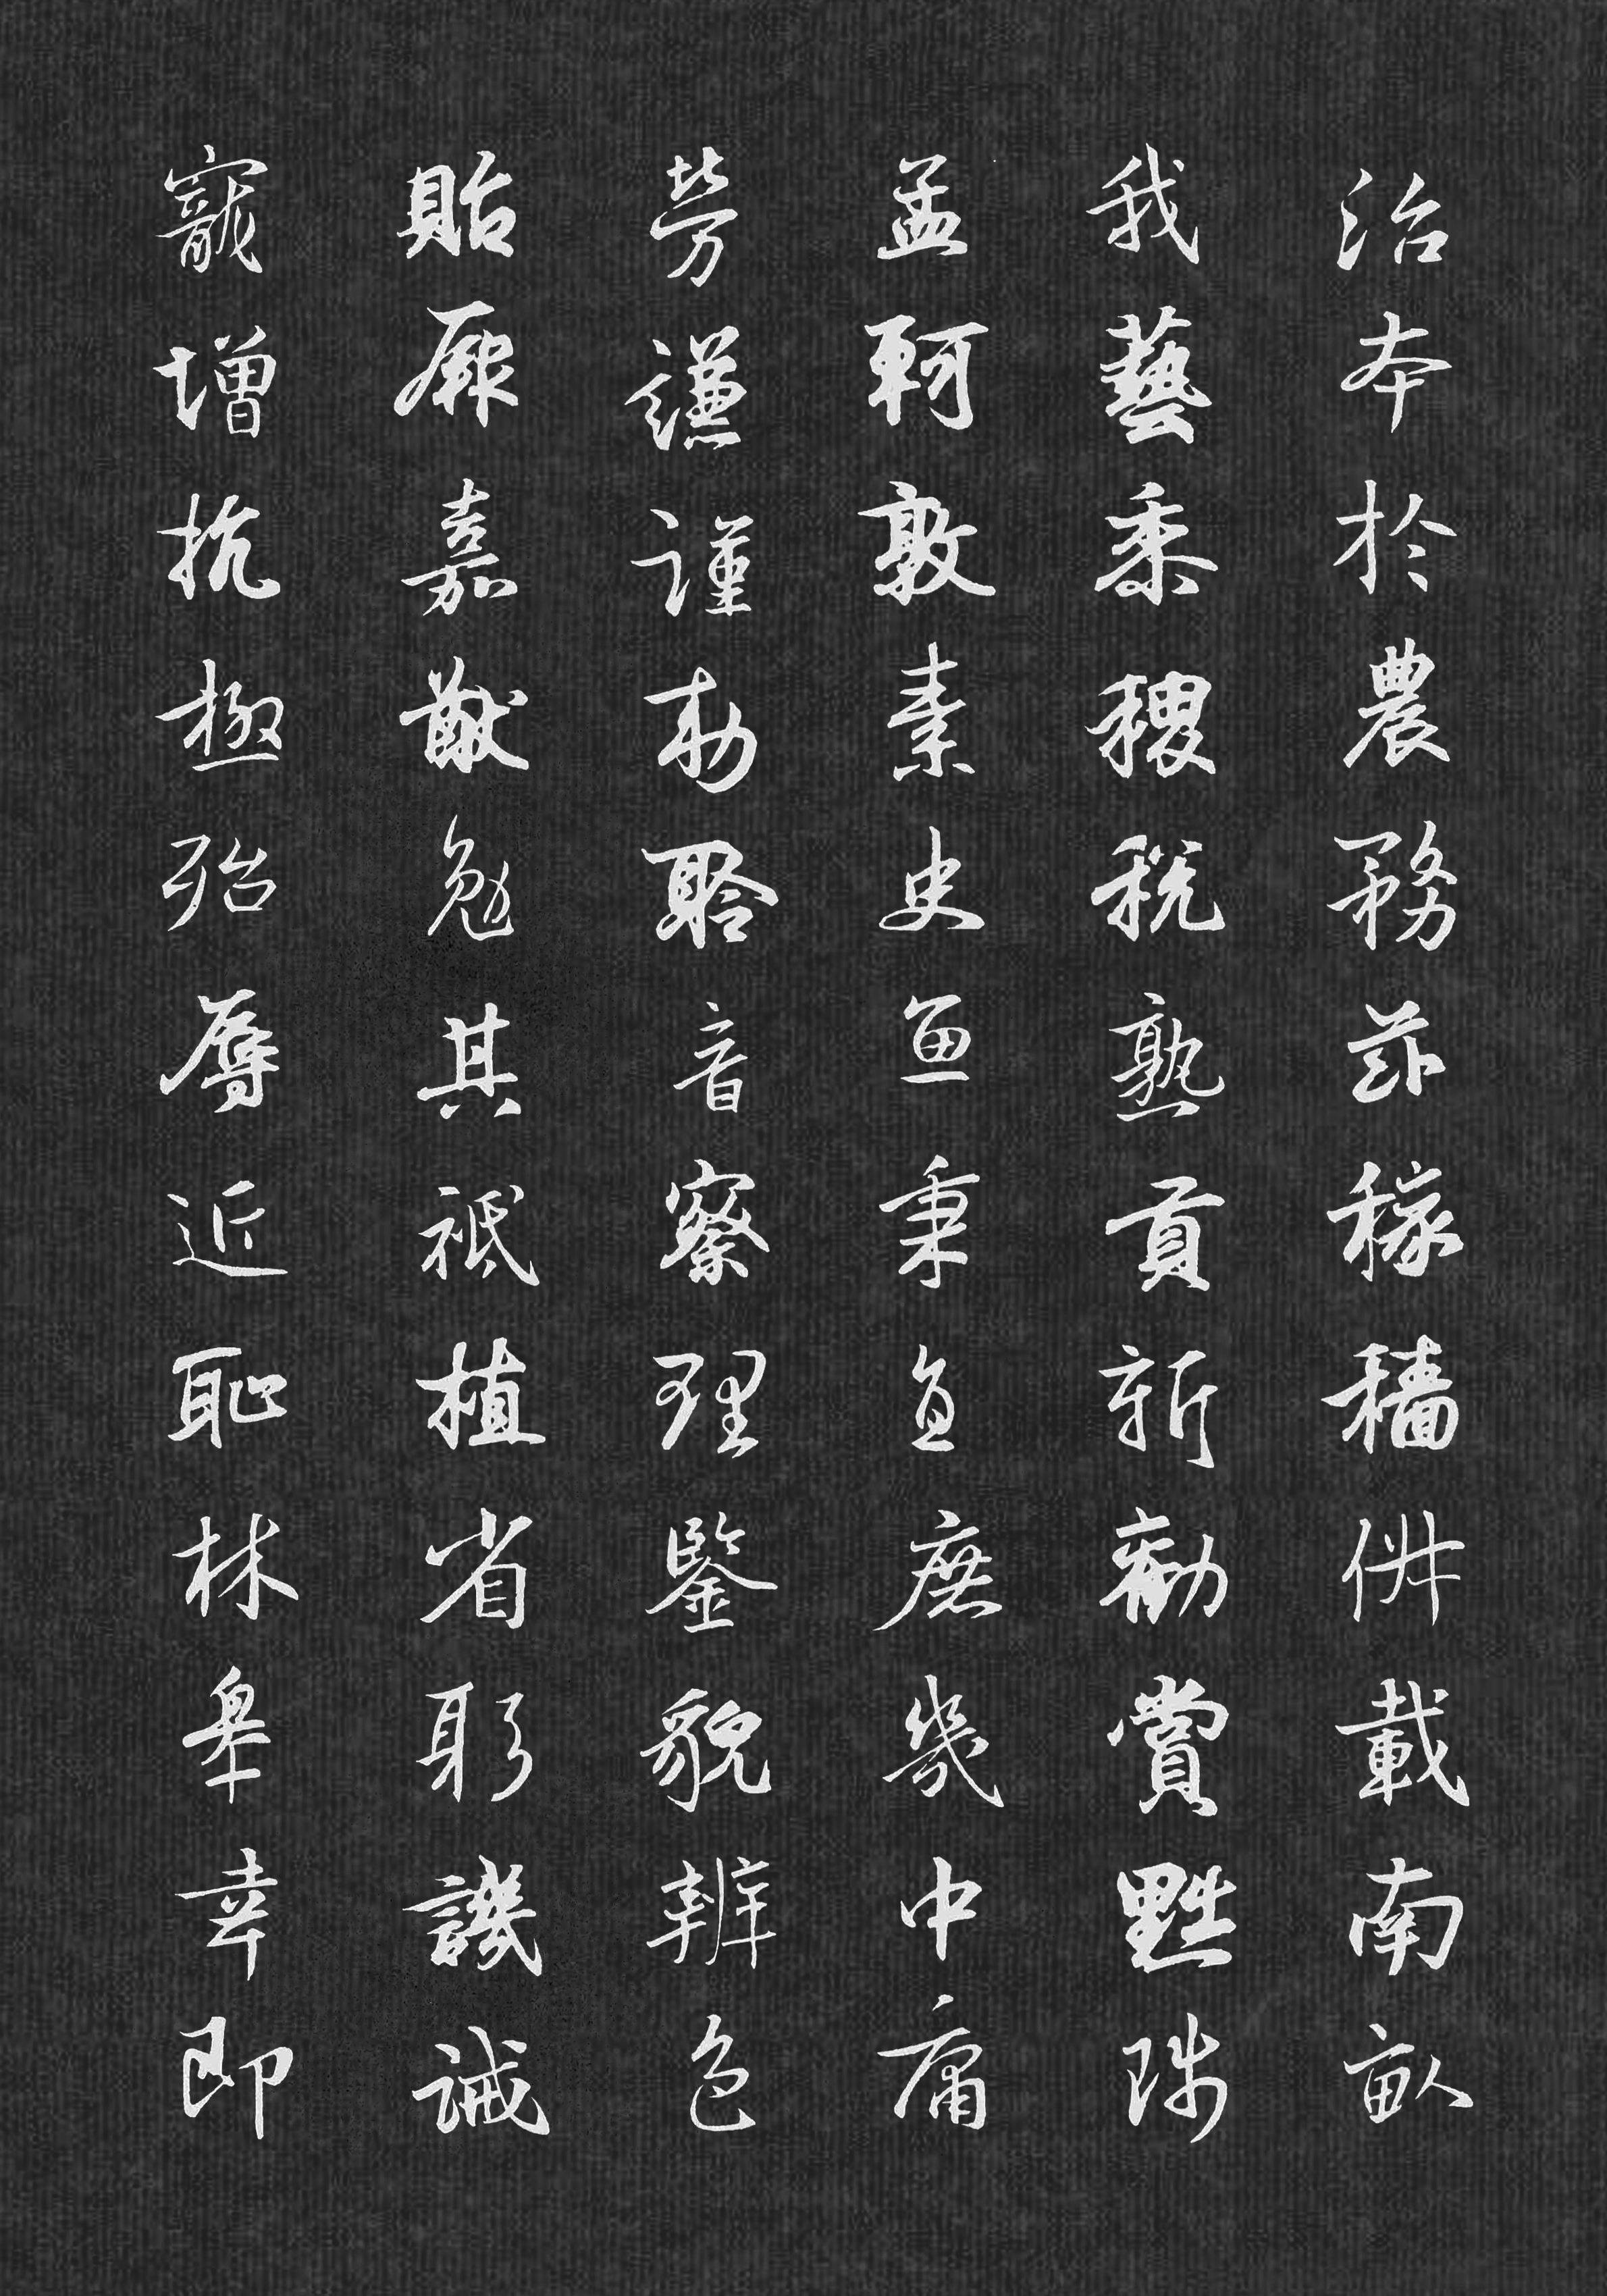 治本於農務茲稼穡俶載南畝
我藝黍稷稅熟貢新勸賞黜陟
孟軻敦素史魚秉直庶幾中庸
勞謙謹勅聆音察理鑒貌辨色
貽厥嘉猷勉其祗植省躬譏誡
寵增抗極殆辱近恥林皋幸即